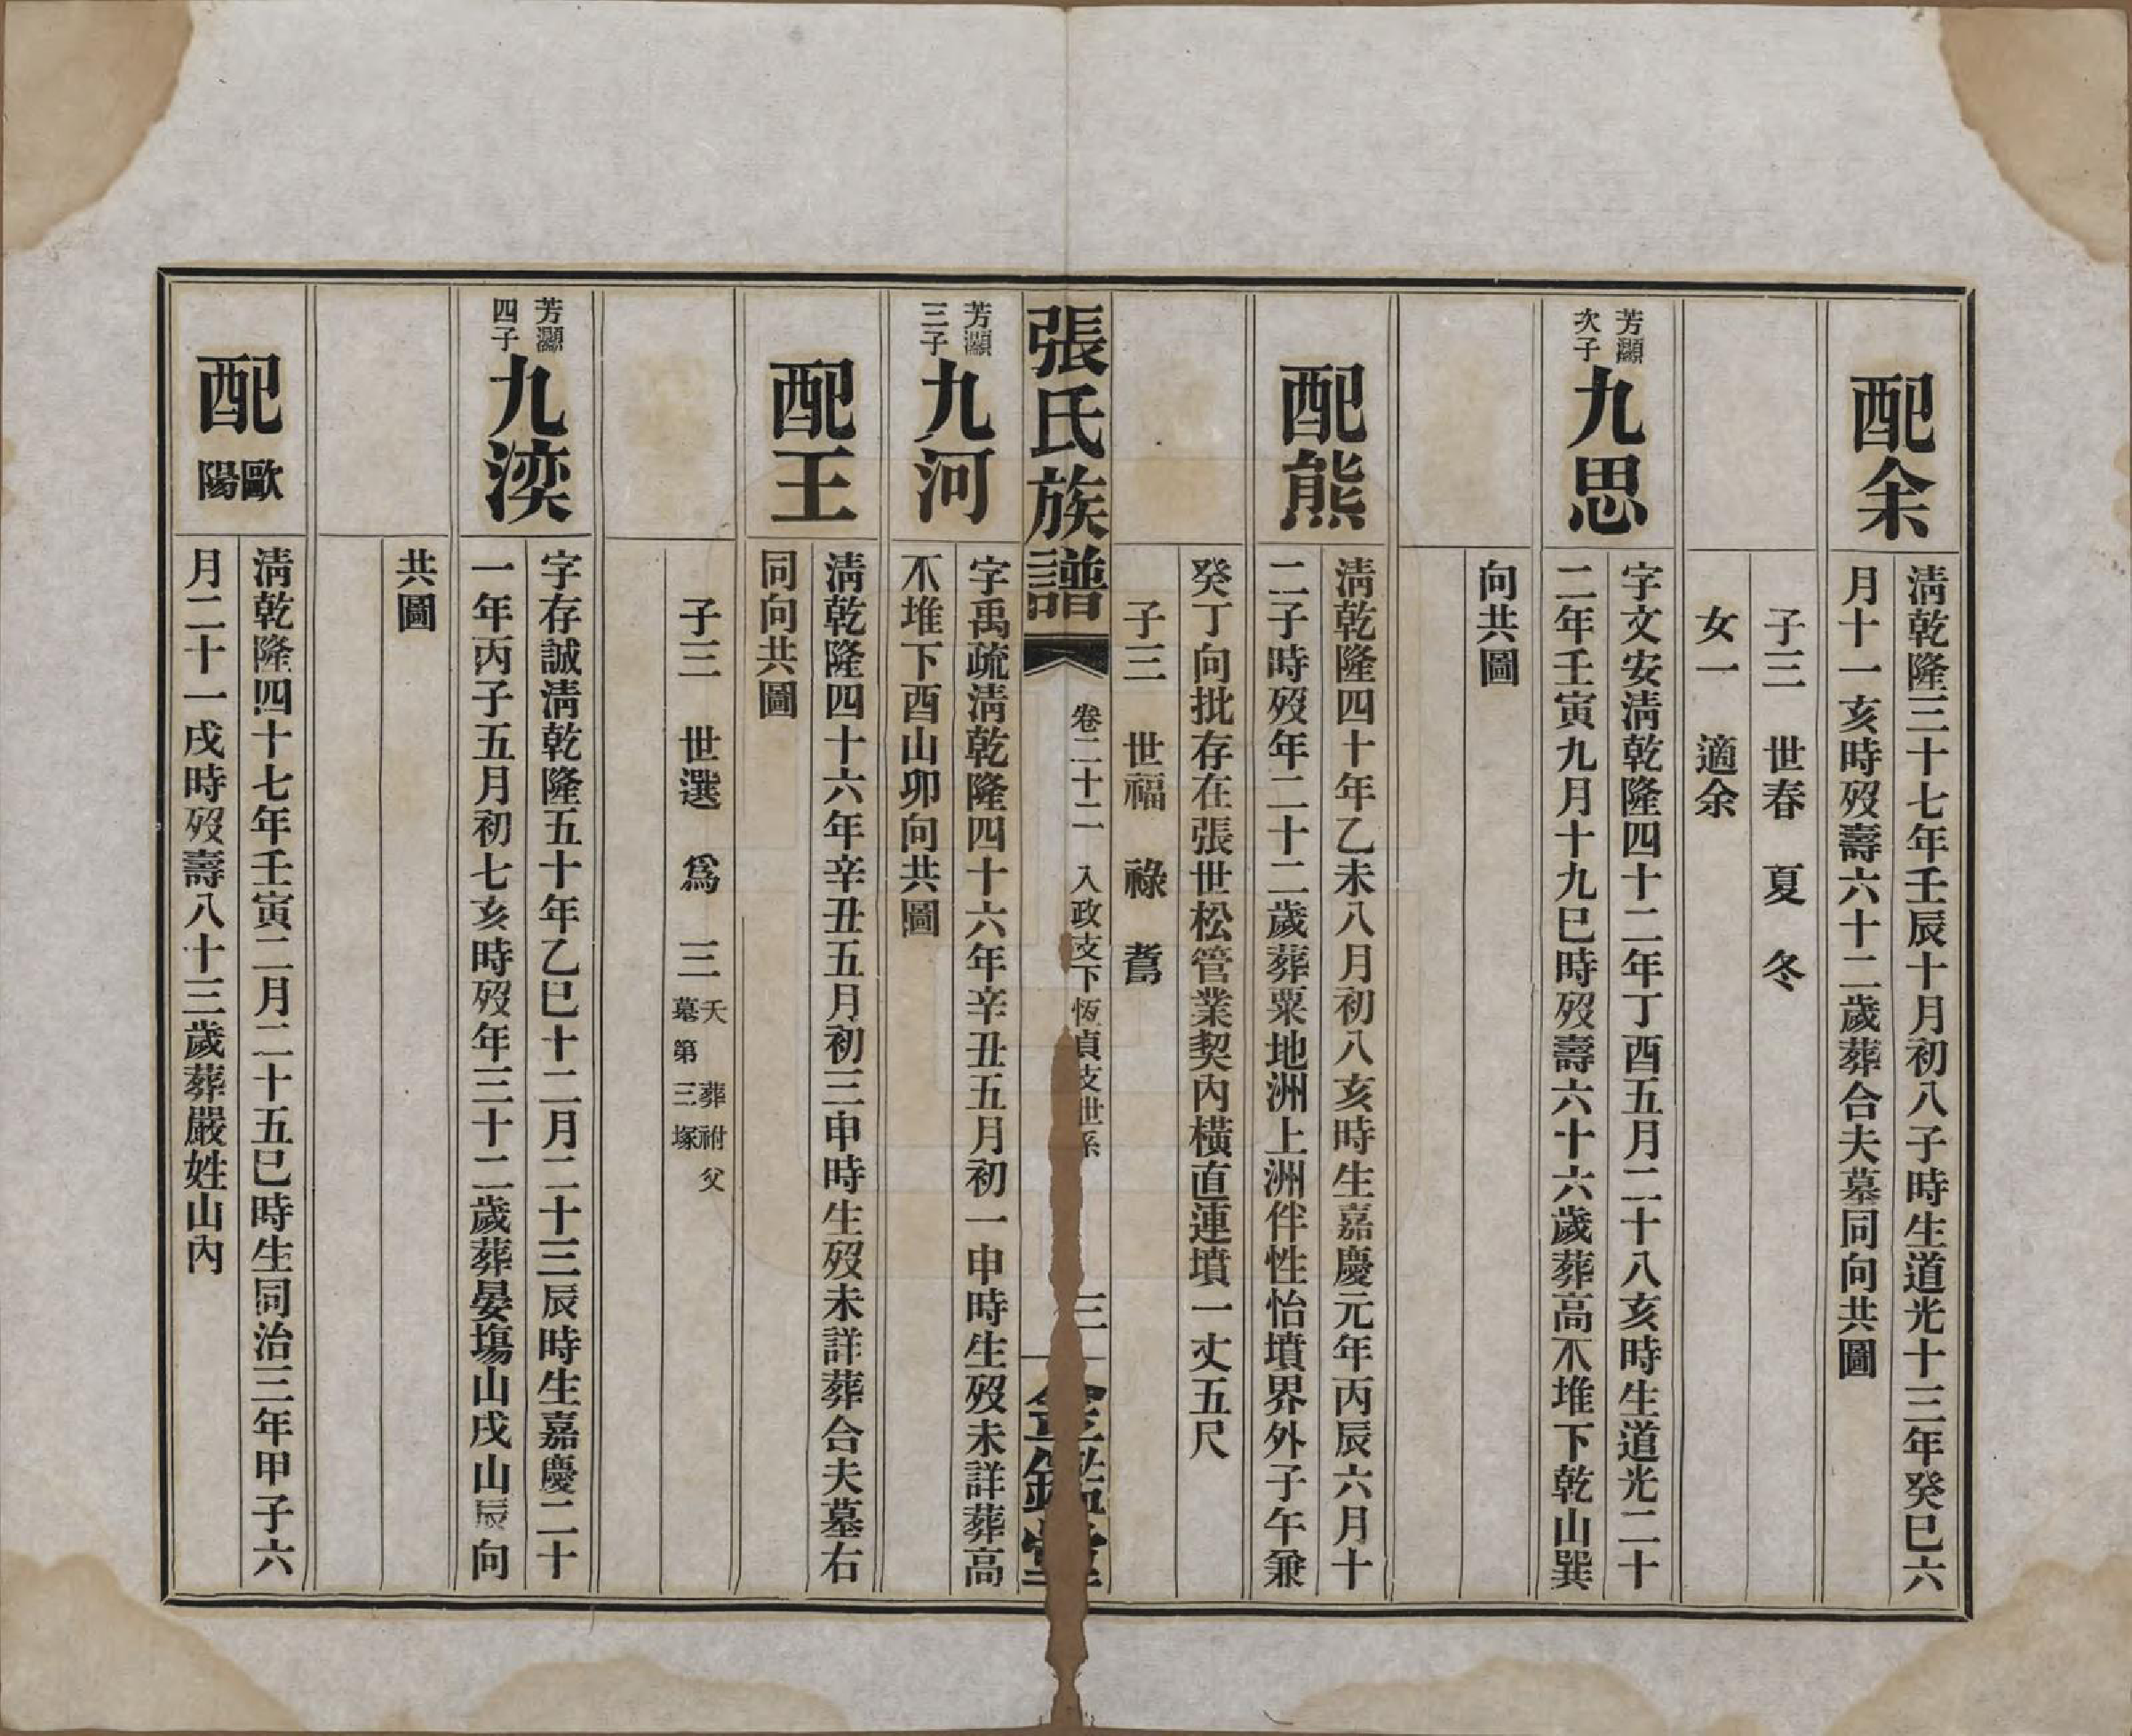 配余
清乾隆三十七年壬辰十月初八子時生道光十三年癸巳六
月十一亥時歿壽六十二歲葬合夫墓同向共圖
子三 世春 夏 冬
女一 適余
芳灝
次子
九思
字文安清乾隆四十二年丁酉五月二十八亥時生道光二十
二年壬寅九月十九巳時歿壽六十六歲葬高不堆下乾山巽
向共圖
配熊
清乾隆四十年乙未八月初八亥時生嘉慶元年丙辰六月十
二子時歿年二十二歲葬粟地洲上洲伴性怡墳界外子午兼
癸丁向批存在張世松管業契內橫直連墳一丈五尺
子三 世福 祿 耆
張氏族譜
卷二十二 入政支下恆貞支世系
三
金鑑堂
芳灝
三子
九河
字禹疏清乾隆四十六年辛丑五月初一申時生歿未詳葬高
不堆下酉山卯向共圖
配王
清乾隆四十六年辛丑五月初三申時生歿未詳葬合夫墓右
同向共圖
子三 世選 爲 三
天 葬祔父
墓第三塚
芳灝
四子
九渶
字存誠清乾隆五十年乙巳十二月二十三辰時生嘉慶二十
一年丙子五月初七亥時歿年三十二歲葬晏塲山戌山辰向
共圖
配
歐
陽
清乾隆四十七年壬寅二月二十五巳時生同治三年甲子六
月二十一戌時歿壽八十三歲葬嚴姓山內